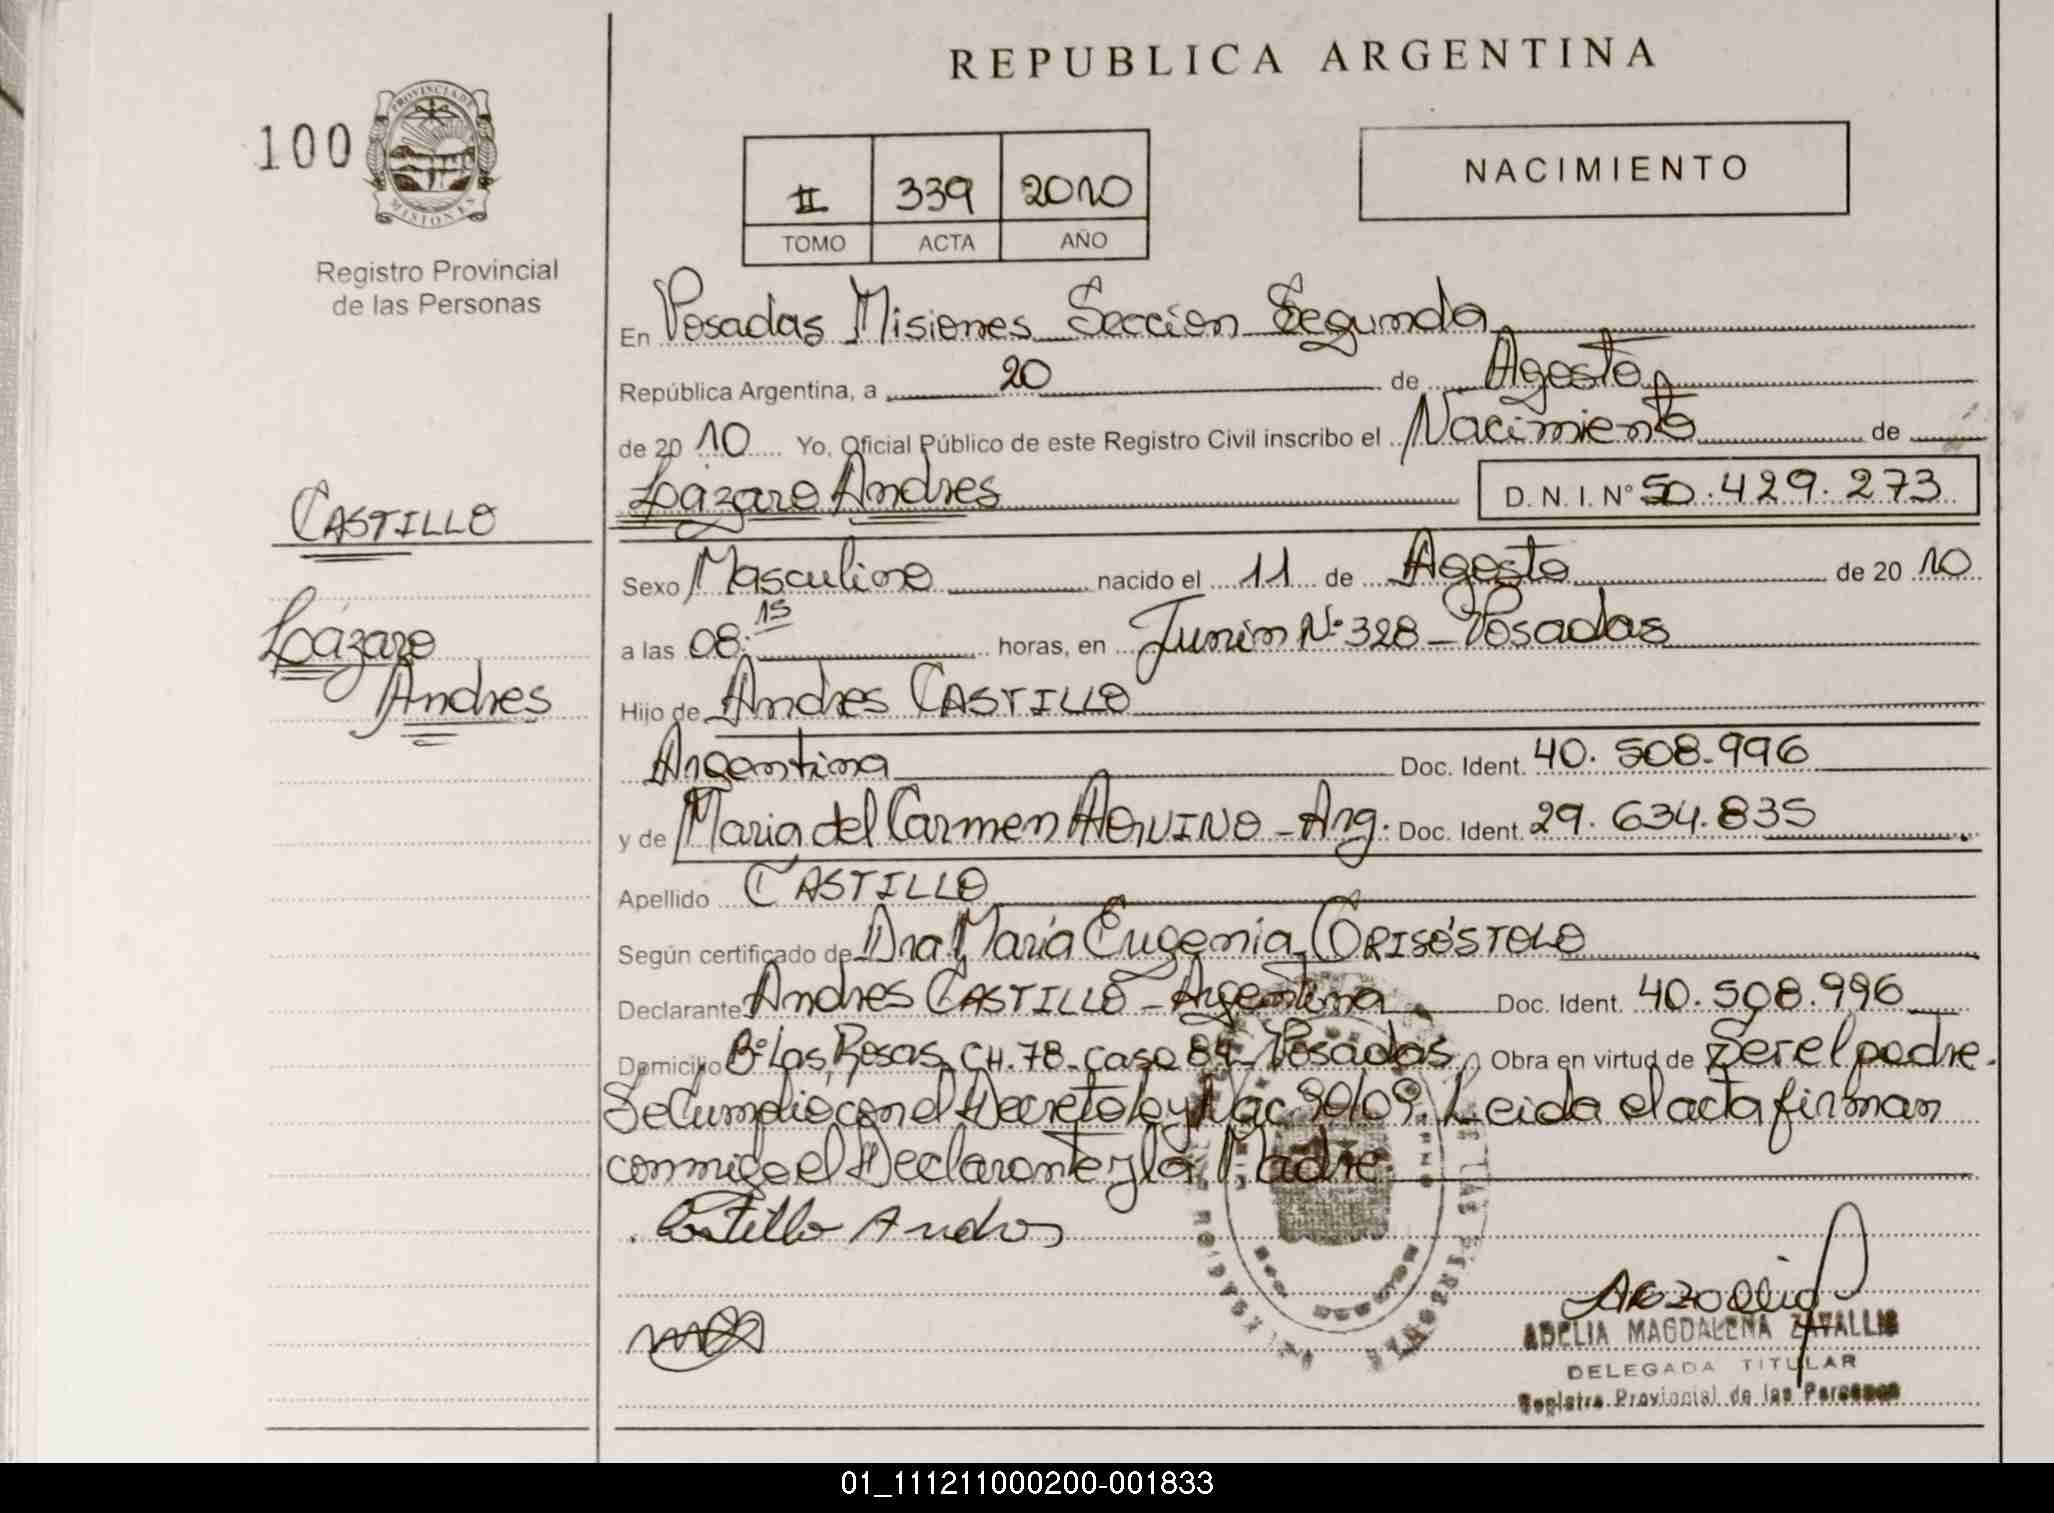 REPUBLICA ARGENTINA
100
PROVINCIA DE
MISIONES
Registro Provincial
de las Personas
II 339 2010
TOMO ACTA AÑO
NACIMIENTO
En Posadas Misiones Seccion Segunda
República Argentina, a 20 de Agosto
de 2010 Yo, Oficial Público de este Registro Civil inscribo el Nacimiento de
Lázaro Andres D. N. I. Nº 50.429.273
CASTILLO
Lázaro
Andres
Sexo Masculino nacido el 11 de Agosto de 2010
a las 08:15 horas, en Junin Nº 328 - Posadas
Hijo de Andres CASTILLO
Argentina Doc. Ident. 40.508.996
y de Maria del Carmen AQUINO - Arg. Doc. Ident. 29.634.835
Apellido CASTILLO
Según certificado de Dra. María Eugenia CRISÓSTOLO
Declarante Andres CASTILLO - Argentina Doc. Ident. 40.508.996
Domicilio Bº Las Rosas CH. 78 - casa 84 - Posadas Obra en virtud de Ser el padre.
Se Cumplio con el Decreto ley Nac 90/09. Leida el acta firman
conmigo el Declarante y la Madre.
Castillo Andres
ADELIA MAGDALENA ZAVALLIS
DELEGADA TITULAR
Registro Provincial de las Personas
01_111211000200-001833